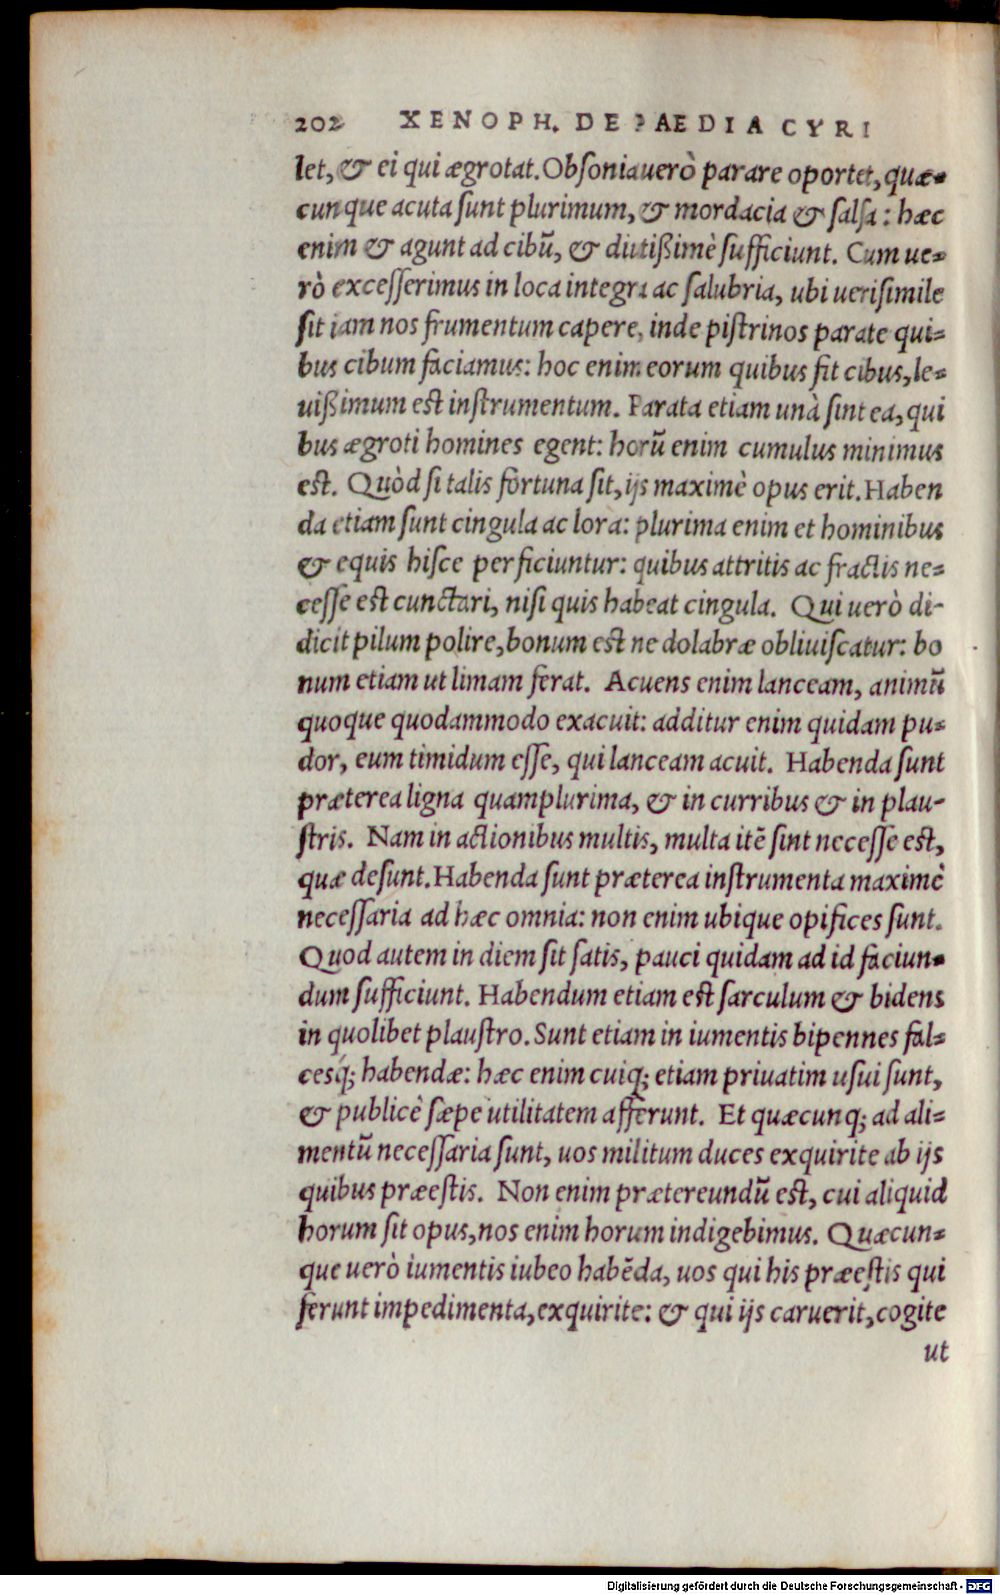 202 XENOPH. DE PAEDIA CYRI
let, & ei qui ægrotat. Obſonia uerò parare oportet, quæ-
cunque acuta ſunt plurimum, & mordacia & ſalſa: hæc
enim & agunt ad cibū, & diutißimè ſufficiunt. Cum ue-
rò exceſſerimus in loca integra ac ſalubria, ubi ueriſimile
ſit iam nos frumentum capere, inde piſtrinos parate qui-
bus cibum faciamus: hoc enim eorum quibus fit cibus, le-
uißimum eſt inſtrumentum. Parata etiam unà ſint ea, qui
bus ægroti homines egent: horū enim cumulus minimus
eſt. Quòd ſi talis fortuna ſit, ijs maximè opus erit. Haben
da etiam ſunt cingula ac lora: plurima enim et hominibus
& equis hiſce perficiuntur: quibus attritis ac fractis ne-
ceſſe eſt cunctari, niſi quis habeat cingula. Qui uerò di-
dicit pilum polire, bonum eſt ne dolabræ obliuiſcatur: bo
num etiam ut limam ferat. Acuens enim lanceam, animū
quoque quodammodo exacuit: additur enim quidam pu-
dor, eum timidum eſſe, qui lanceam acuit. Habenda ſunt
præterea ligna quamplurima, & in curribus & in plau-
ſtris. Nam in actionibus multis, multa itē ſint neceſſe eſt,
quæ deſunt. Habenda ſunt præterea inſtrumenta maximè
neceſſaria ad hæc omnia: non enim ubique opifices ſunt.
Quod autem in diem ſit ſatis, pauci quidam ad id faciun-
dum ſufficiunt. Habendum etiam eſt ſarculum & bidens
in quolibet plauſtro. Sunt etiam in iumentis bipennes fal-
cesq́; habendæ: hæc enim cuiq; etiam priuatim uſui ſunt,
& publicè ſæpe utilitatem afferunt. Et quæcunq; ad ali-
mentū neceſſaria ſunt, uos militum duces exquirite ab ijs
quibus præeſtis. Non enim prætereundū eſt, cui aliquid
horum ſit opus, nos enim horum indigebimus. Quæcun-
que uerò iumentis iubeo habēda, uos qui his præeſtis qui
ferunt impedimenta, exquirite: & qui ijs caruerit, cogite
ut
Digitalisierung gefördert durch die Deutsche Forschungsgemeinschaft - DFG